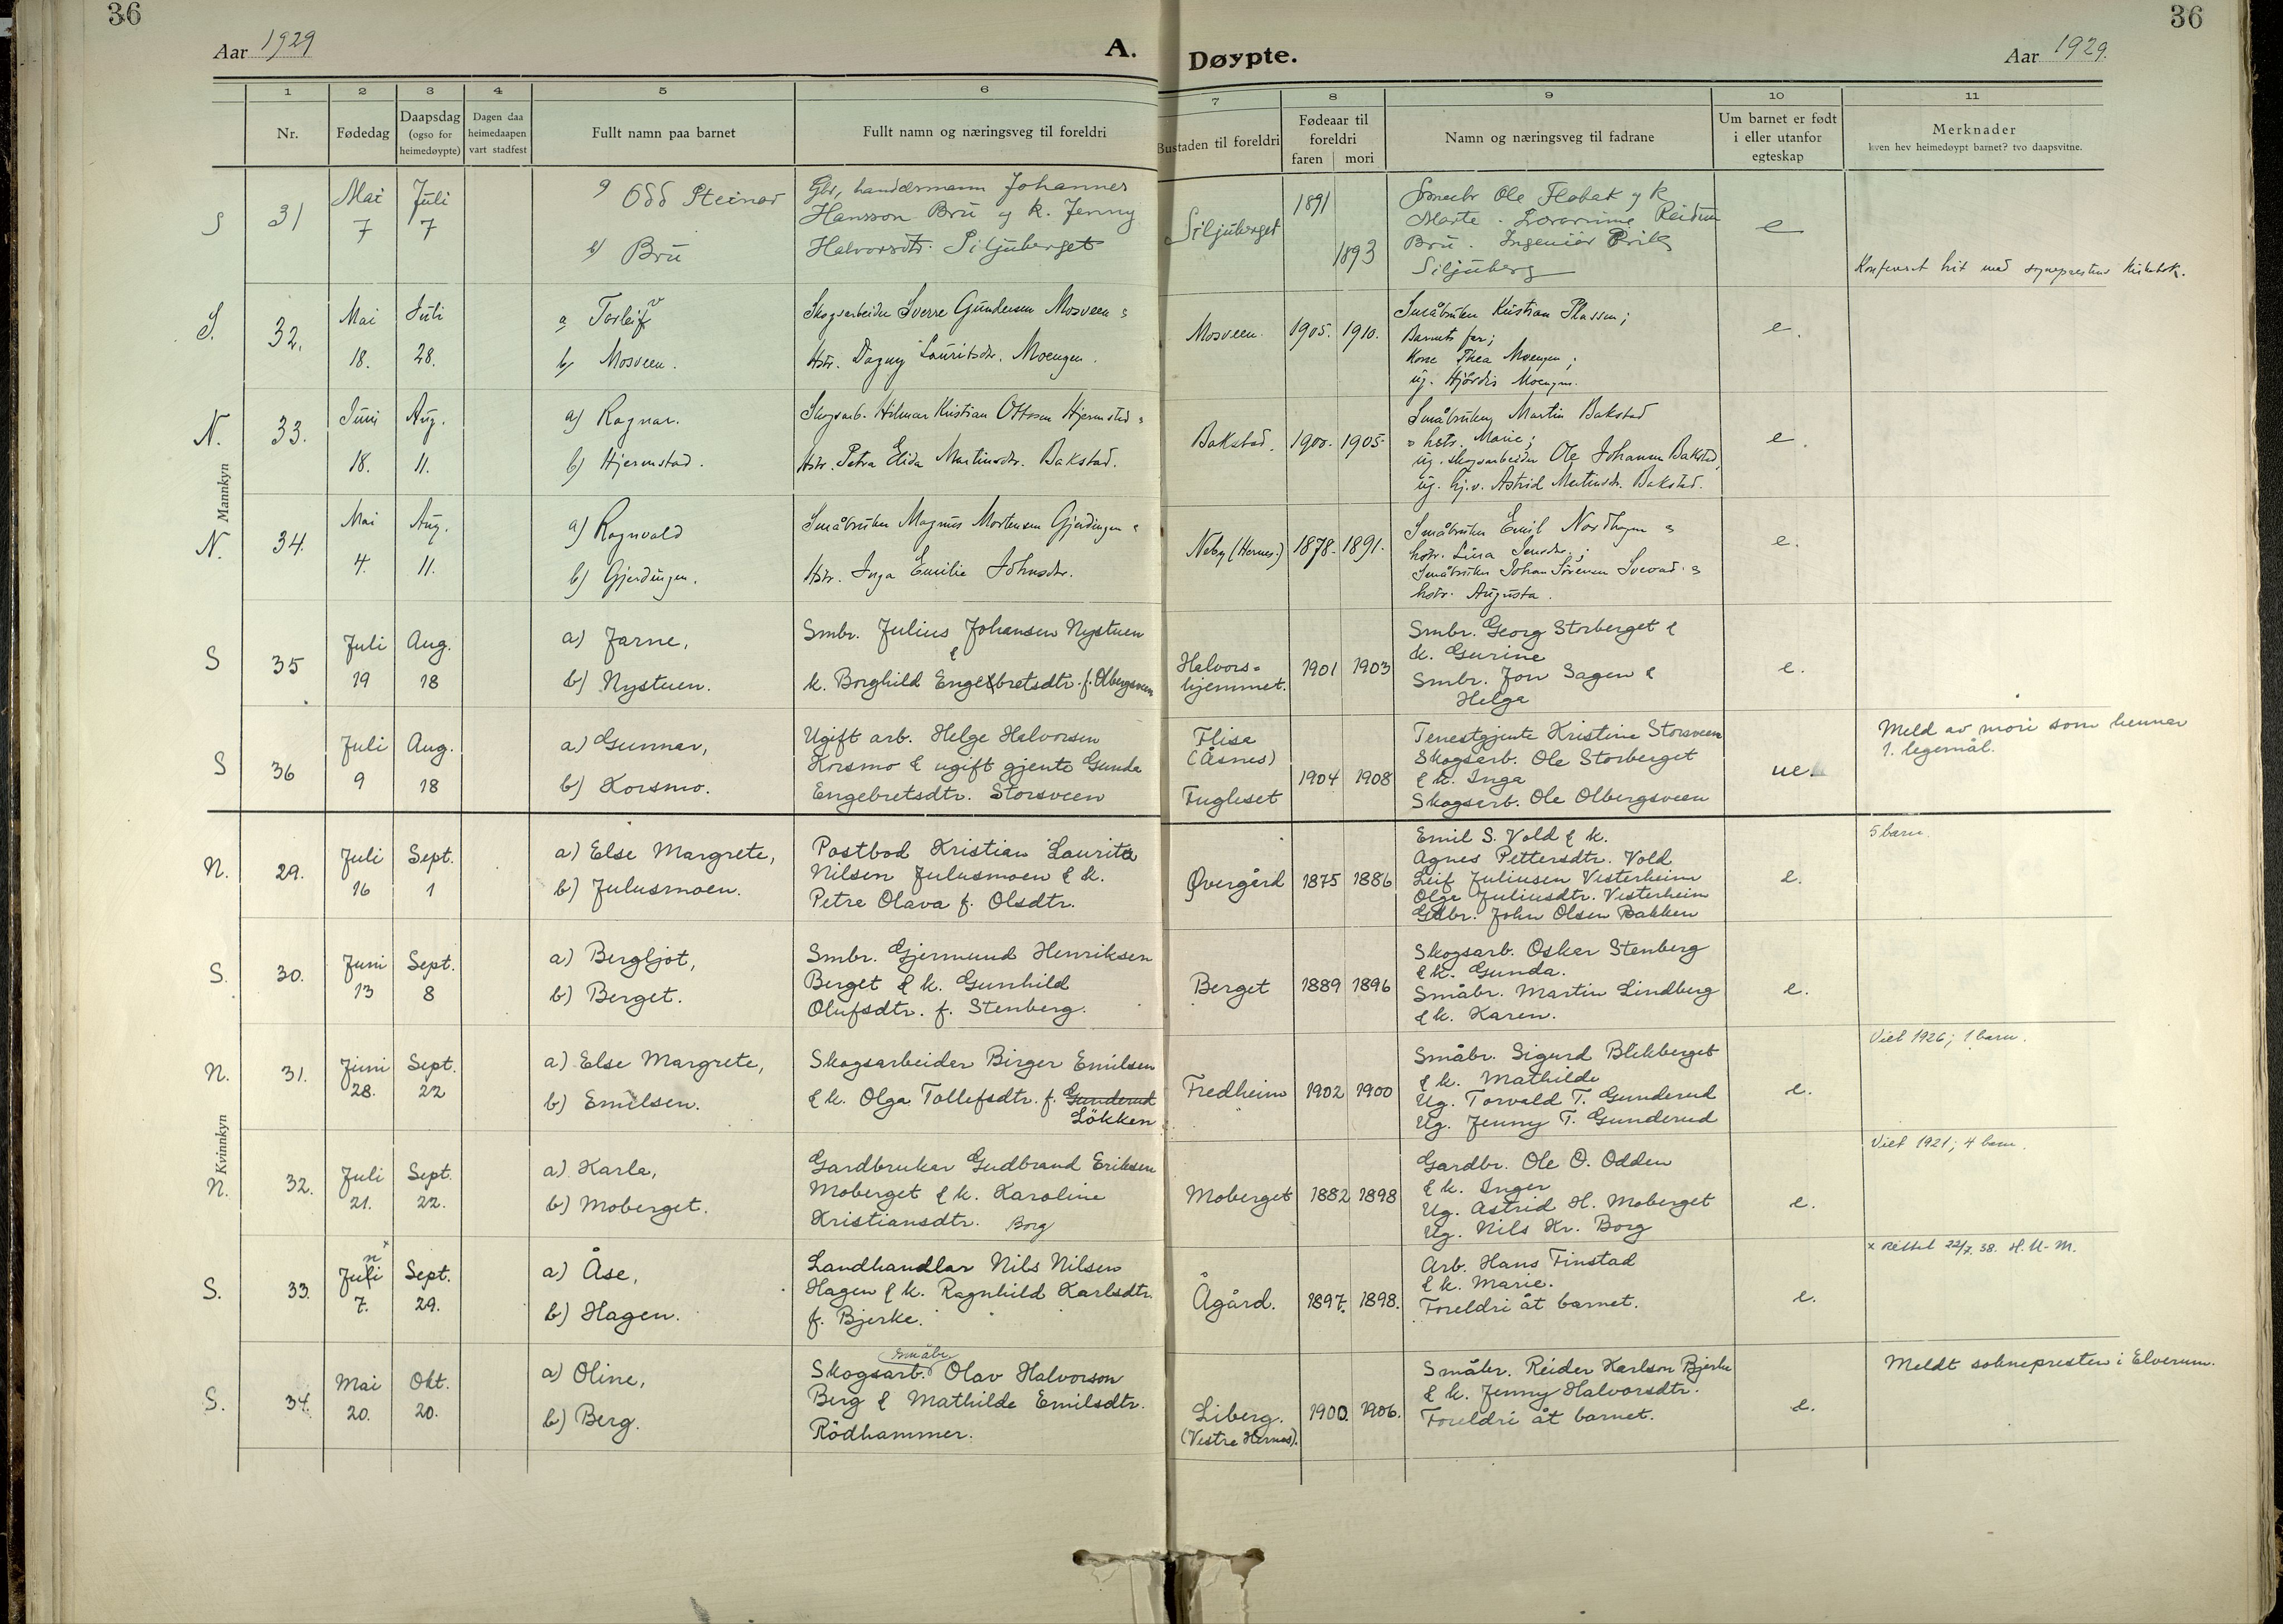 36
36
Aar 1929
A.
Døypte.
Aar 1929.
1
2
3
4
5
6
7
8
9
10
11
Nr.
Fødedag
Daapsdag
(ogso for
heimedøypte)
Dagen daa
heimedaapen
vart stadfest
Fullt namn paa barnet
Fullt namn og næringsveg til foreldri
Bustaden til foreldri
Fødeaar til
foreldri
faren
mori
Namn og næringsveg til fadrane
Um barnet er født
i eller utanfor
egteskap
Merknader
kven hev heimedøypt barnet? tvo daapsvitne.
Mannkyn
S
31
Mai
7
Juli
7
a) Odd Steinar
b) Bru
Gbr, handelsmann Johannes
Hansson Bru og k. Jenny
Halvorsdtr. Siljuberget
Siljuberget
1891
1893
Ole Flobak og k
Marte. Lærarinne Reidun
Bru. Ingeniør Erik
Siljuberg
e
Konferert hit med sogneprestens kirkebok.
S.
32.
Mai
18.
Juli
28.
a) Torleif v
b) Mosveen.
Skogsarbeider Sverre Gundersen Mosveen &
Hstr. Dagny Lauritsdtr. Moengen.
Mosveen.
1905.
1910.
Småbruker Kristian Plassen;
Barnets far;
Kone Thea Moengen;
ug. Hjördis Moengen.
e.
N.
33.
Juni
18.
Aug.
11.
a) Ragnar.
b) Hjermstad.
Skogsarb. Hilmar Kristian Ottosen Hjermstad &
Hstr. Petra Elida Martinsdtr. Bakstad.
Bakstad.
1900.
1905.
Småbruker Martin Bakstad
& hstr. Marie;
ug. skogsarbeider Ole Johansen Bakstad,
ug. hj.v. Astrid Martinsdtr. Bakstad.
e.
N.
34.
Mai
4.
Aug.
11.
a) Ragnvald
b) Gjerdingen.
Småbruker Magnus Mortensen Gjerdingen &
Hstr. Inga Emilie Johnsdtr.
Neby (Hernes.)
1878.
1891.
Småbruker Emil Nordhagen &
hstr. Lina Jensdtr.;
Småbruker Johan Sörensen &
hstr. Augusta.
e.
S
35
Juli
19
Aug.
18
a) Jarne,
b) Nystuen.
Smbr. Julius Johansen Nystuen
&
k. Borghild Engebretsdtr. f. Olbergsveen
Halvors=
hjemmet.
1901
1903
Smbr. Georg Storberget &
k. Gurine
Smbr. Jon Sagen &
Helga
e.
S
36
Juli
9
Aug.
18
a) Gunnar,
b) Korsmo.
Ugift arb. Helge Halvorsen
Korsmo & ugift gjente Gunda
Engebretsdtr. Storsveen
Flisa
(Åsnes)
Fugleset
1904
1908
Tenestgjente Kristine Storsveen
Skogsarb. Ole Storberget
& k. Inga
Skogsarb. Ole Olbergsveen
ue.
Meld av mori som hennar
1. legemål.
Kvinnkyn
N.
29.
Juli
16
Sept.
1
a) Else Margrete,
b) Julusmoen.
Postbod Kristian Lauritz
Nilsen Julusmoen & k.
Petra Olava f. Olsdtr.
Øvergård
1875
1886
Emil S. Vold & k.
Agnes Pettersdtr. Vold
Leif Juliusen Vesterheim
Olga Juliusdtr. Vesterheim
Gdbr. John Olsen Bakken
e.
5 barn.
S.
30.
Juni
13
Sept.
8
a) Bergljot,
b) Berget.
Smbr. Gjermund Henriksen
Berget & k. Gunhild
Olufsdtr. f. Stenberg.
Berget
1889
1896
Skogsarb. Oskar Stenberg
& k. Gunda.
Småbr. Martin Lindberg
& k. Karen.
e.
N.
31.
Juni
28.
Sept.
22
a) Else Margrete,
b) Emilsen.
Skogsarbeider Birger Emilsen
& k. Olga Tollefsdtr. f. Gunderud
Lökken
Fredheim
1902
1900
Småbr. Sigurd Blikberget
& k. Mathilde
Ug. Torvald T. Gunderud
Ug. Jenny T. Gunderud
e.
Viet 1926; 1 barn.
N.
32.
Juli
21.
Sept.
22.
a) Karla,
b) Moberget.
Gardbruker Gudbrand Eriksen
Moberget & k. Karoline
Kristiansdtr. Borg
Moberget
1882
1898
Gardbr. Ole O. Odden
& k. Inger
Ug. Astrid H. Moberget
Ug. Nils Kr. Borg
e.
Viet 1921; 4 barn.
S.
33.
n x
Juli
7.
Sept.
29.
a) Åse,
b) Hagen.
Landhandlar Nils Nilsen
Hagen & k. Ragnhild Karlsdtr.
f. Bjerke.
Ågård.
1897.
1898.
Arb. Hans Finstad
& k. Marie.
Foreldri åt barnet.
e.
x rettet 22/7. 38. H. U-M.
S.
34.
Mai
20.
Okt.
20.
a) Oline,
b) Berg.
Småbr.
Skogsarb. Olav Halvorson
Berg & Mathilde Emilsdtr.
Rödhammer.
Liberg.
(Vestre Hernes).
1900.
1906.
Småbr. Reidar Karlson Bjerke
& k. Jenny Halvorsdtr.
Foreldri åt barnet.
e.
Meldt soknepresten i Elverum.